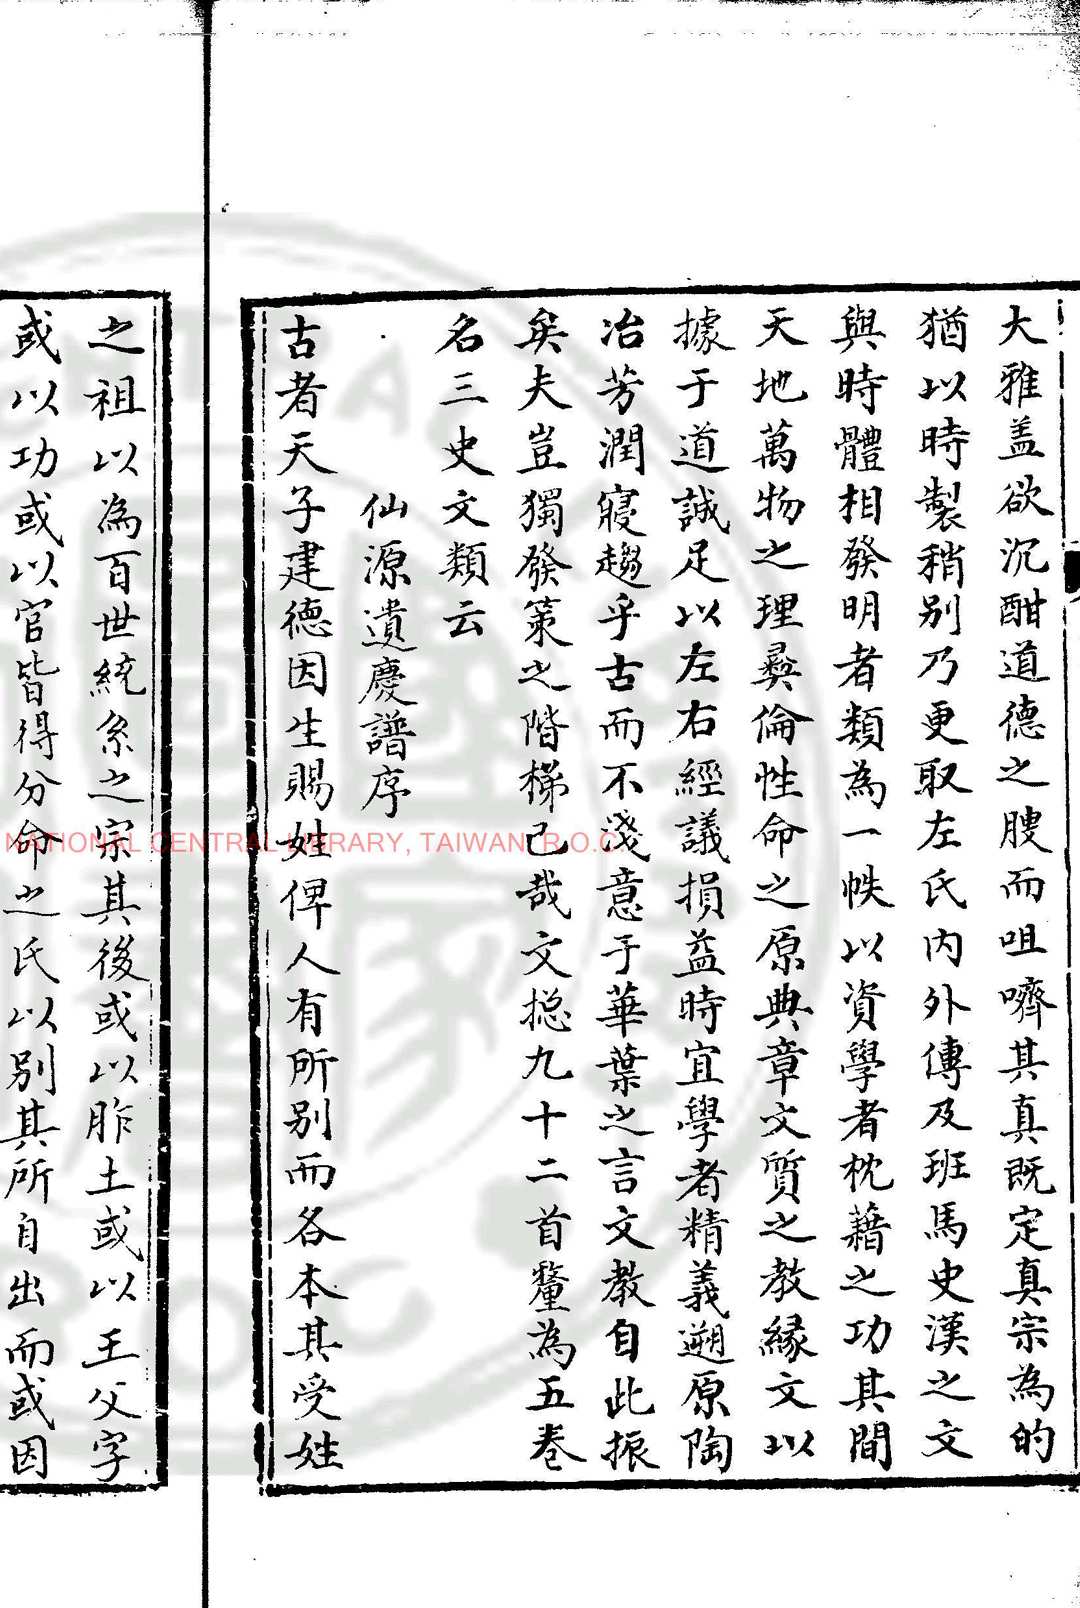 大雅盖欲沉酣道德之腴而咀嚌其真既定真宗為的
猶以時製稍别乃更取左氏内外傳及班馬史漢之文
與時體相發明者類為一帙以資學者枕藉之功其間
天地萬物之理彛倫性命之原典章文質之教縁文以
據于道誠足以左右經議損益時宜學者精義遡原陶
冶芳潤寢趨乎古而不淺意于華葉之言文教自此振
矣夫豈獨發策之階梯已哉文揔九十二首釐為五卷
名三史文類云
仙源遺慶譜序
古者天子建德因生賜姓俾人有所别而各本其受姓
之祖以為百世統系之宗其後或以胙土或以王父字
或以功或以官皆得分命之氏以别其所自出而或因
NATIONAL CENTRAL LIBRARY, TAIWAN, R.O.C